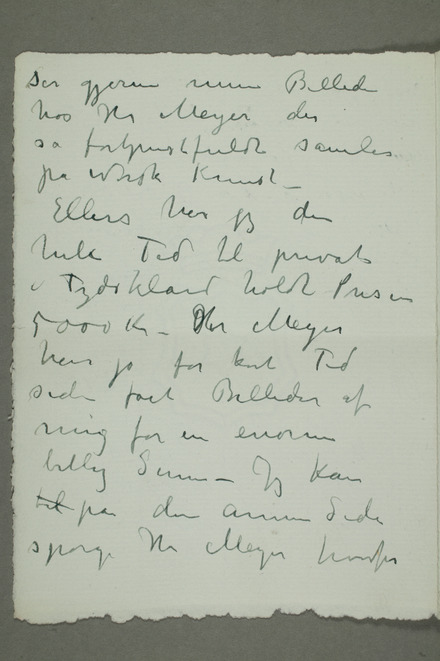 ser gjerne mine Billeder
hos Hr Meyer der
så fortjenstfuldt samler
på norsk Kunst –
Ellers har jeg den
hele Tid til privat
i Tydskland holdt Prisen
5000 Kr – Hr Meyer
har jo for kort Tid
siden fået Billeder af
mig for en enorm
billig Sum – Jeg kan
til på den annen Side
spørge Hr Meyer hvorfor